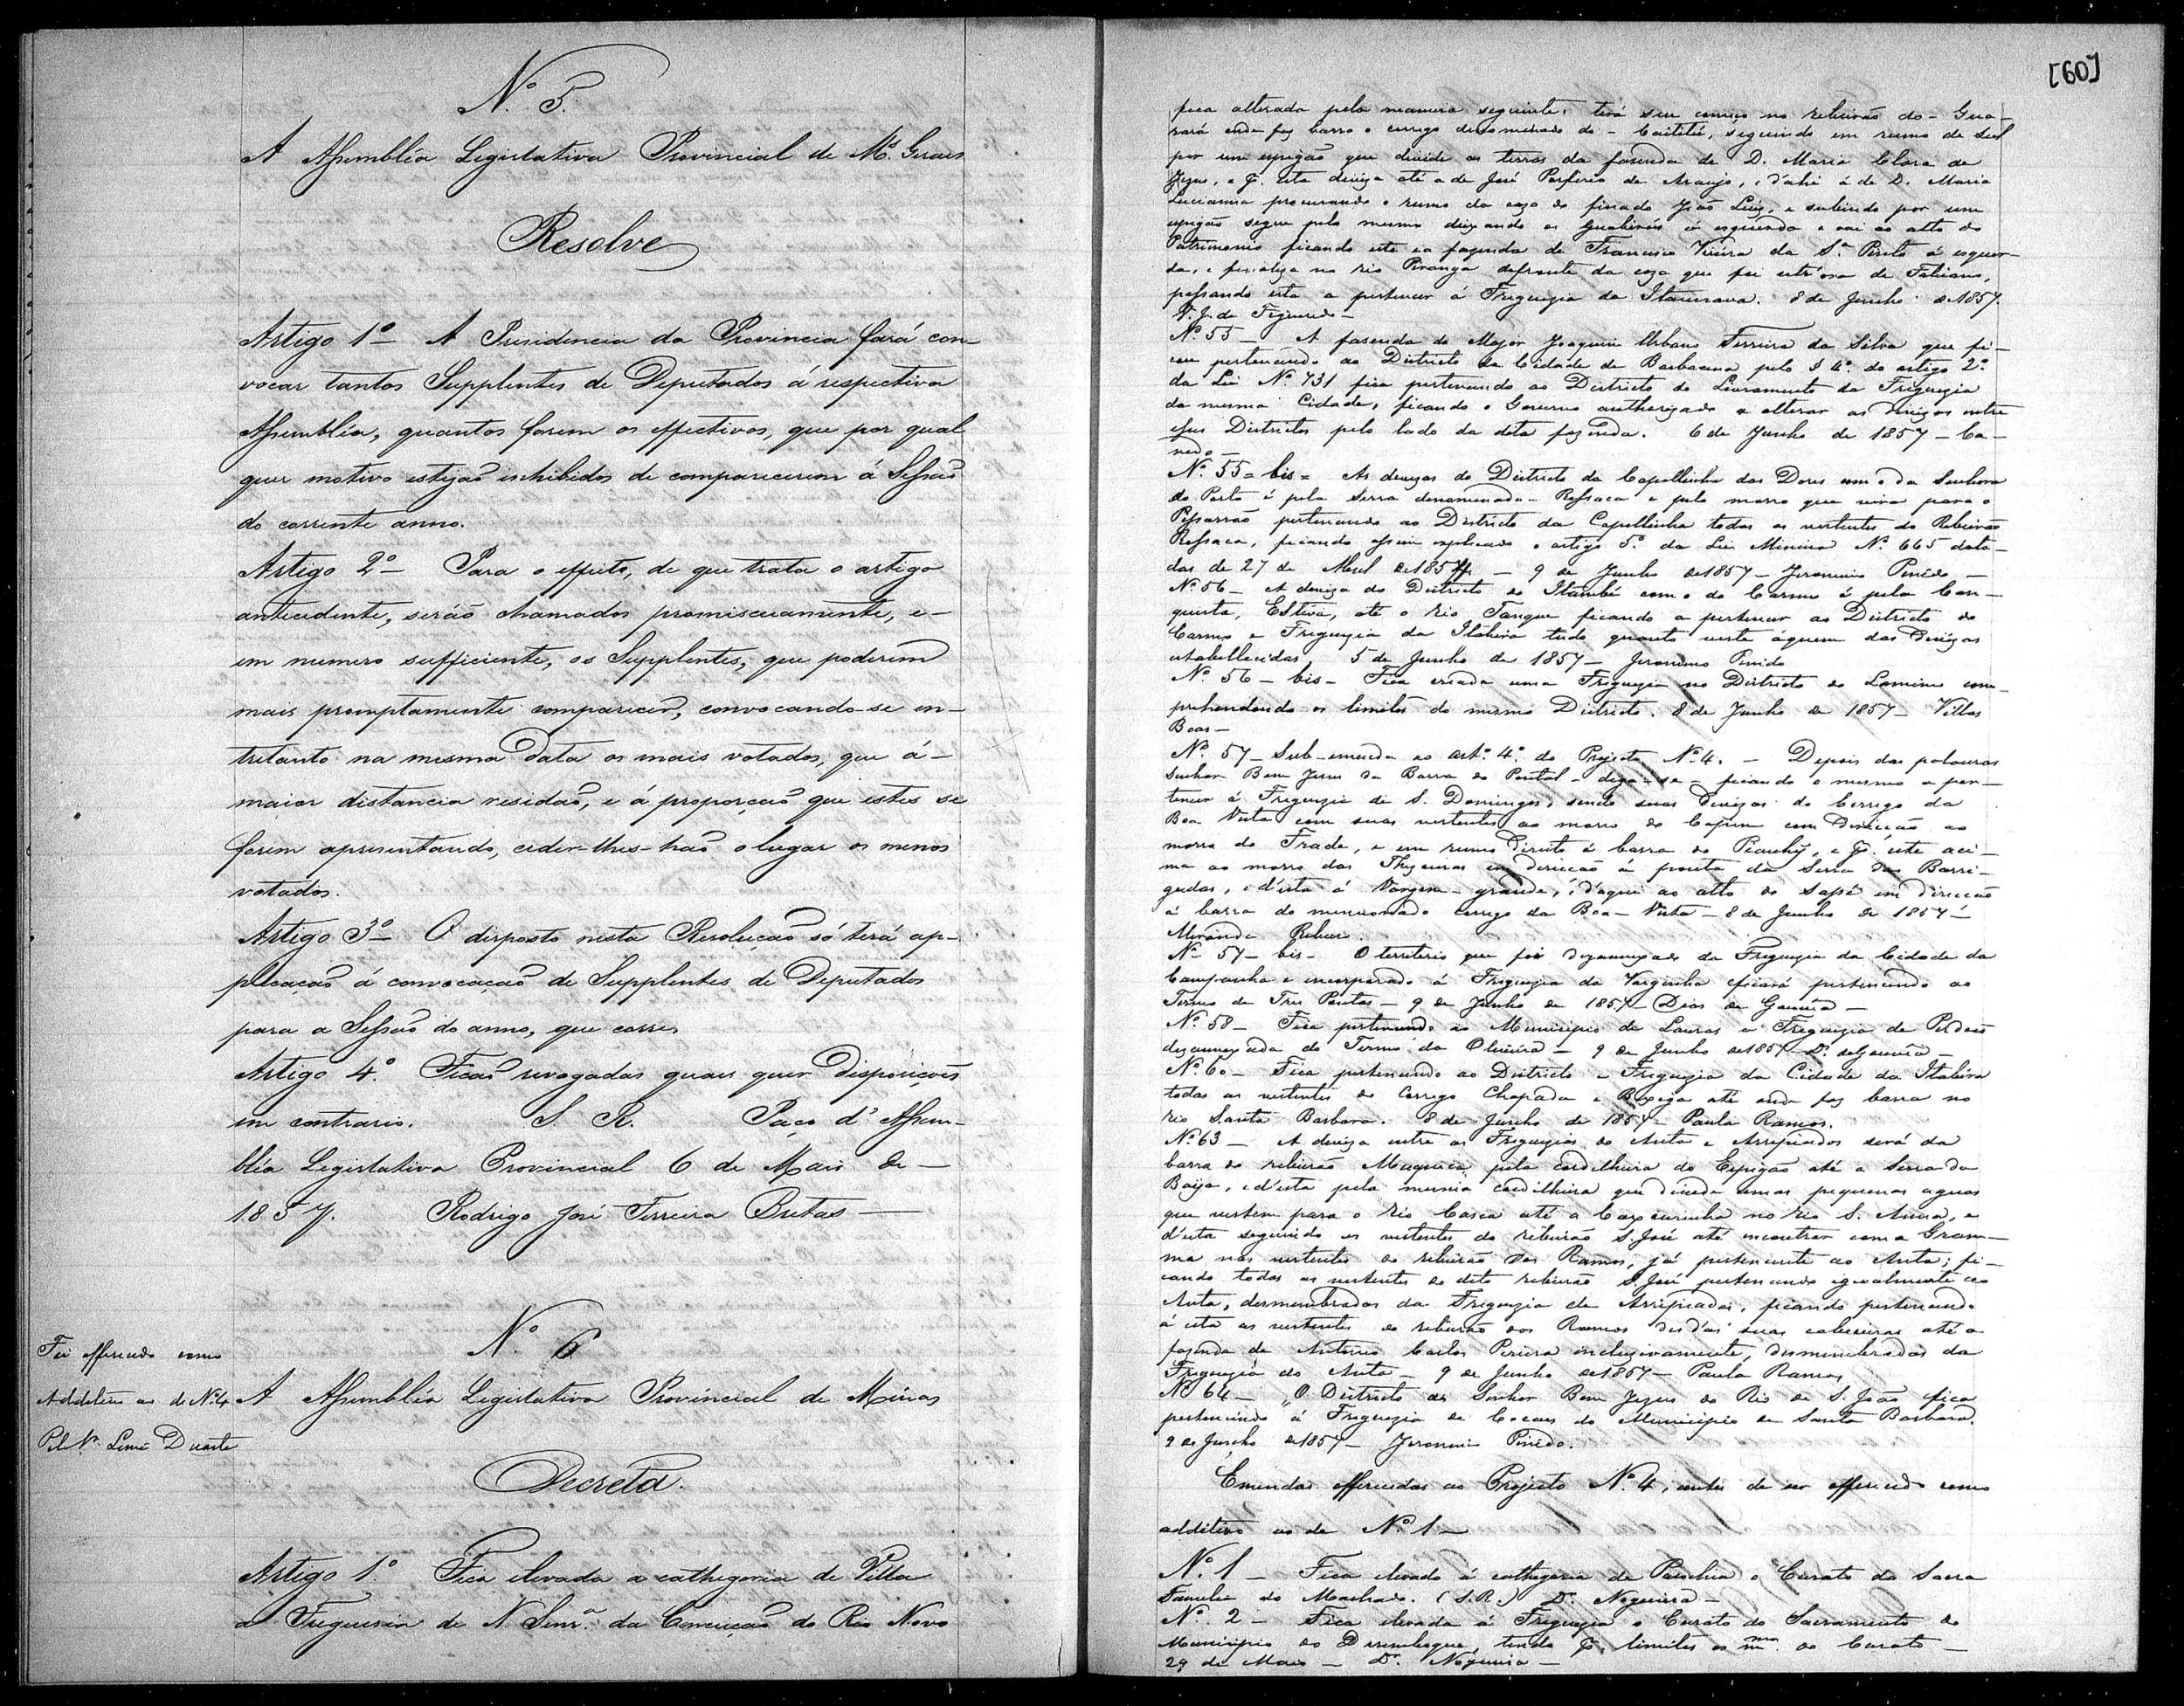 Nº 5.
A Assembléa Legislativa Provincial de Mª Geraes
Resolve
Artigo 1º A Presidencia da Provincia fará con-
vocar tantos Supplentes de Deputados á respectiva
Assembléa, quantos forem os effectivos, que por qual
quer motivo estejão inhibidos de comparecerem á Sessão
do corrente anno.
Artigo 2º Para o effeito, de que trata o artigo
antecedente, serão chamados promiscuamente, e-
em numero sufficiente, os Supplentes, que poderem
mais promptamente comparecer, convocando-se en-
tretanto na mesma data os mais votados, que á-
maior distancia residão, e á proporção que estes se
forem apresentando, ceder-lhes-hão o lugar os menos
votados.
Artigo 3º O disposto nesta Resolução só terá ap-
plicação á convocação de Supplentes de Deputados
para a Sessão do anno, que corre.
Artigo 4º. Ficão revogadas quaes quer disposições
em contrario. S. R. Paço d'Assem-
bléa Legislativa Provincial 6 de Maio de
1857. Rodrigo José Ferreira Bretas
Nº 6
Foi offerecido como
Additivo ao de Nº 4
Pelo Sr. Leme Duarte
A Assembléa Legislativa Provincial de Minas
Decreta.
Artigo 1º Fica elevada a cathegoria de Villa
a Freguesia de N. Senrª. da Conceição do Rio Novo
[60]
fica alterada pela maneira seguinte: terá seu começo no ribeirão do Gua-
rará onde faz barra o corrego denominado do Caititú, seguindo em rumo de Sul
por um espigão que divide as terras da fazenda de D. Maria Clara de
Jezus, e p. esta diviza até a de José Porfirio de Araujo, e d'ahi á de D. Maria
Lucianna procurando o rumo da caza do finado João Luiz, e subindo por um
espigão segue pelo mesmo deixando os á esquerda e vai ao alto do
Patrimonio ficando este e a fazenda de Francisco Vieira da Sª Pinto á esquer-
da, e finaliza no rio Piranga defronte da caza que foi outr'ora de Fabiano,
passando esta a pertencer á Freguezia da Itaverava. 8 de Junho de 1857.
de Figueiredo
Nº 55 - A fazenda do Major Joaquim Urbano Ferreira da Silva que fi-
cou pertencendo ao Districto da Cidade de Barbacena pelo § 4º do artigo 2º
da Lei Nº 731 fica pertencendo ao Districto do Livramento da Freguezia
da mesma Cidade, ficando o Governo authorizado a alterar as divizas entre
esses Districtos pelo lado da dita fazenda. 6 de Junho de 1857 - Ca-
nedo
Nº 55 = bis = As divizas do Districto da Capellinha das Dores com o da Senhora
do Porto é pela Serra denominada - Ressaca e pelo morro que vira para o
Pissarrão pertencendo ao Districto da Capellinha todas as vertentes do Ribeirão
Ressaca, ficando assim explicado o artigo 5º da Lei Mineira Nº 665 data-
das de 27 de Abril de 1854 - 9 de Junho de 1857 - Jeronimo Penido -
Nº 56 - A diviza do Districto do Itambé com o do Carmo é pela Con-
quista, Estiva, até o rio Tanque ficando a pertencer ao Districto do
Carmo e Freguezia da Itabira tudo quanto neste áquem das divizas
estabellecidas. 5 de Junho de 1857 - Jeronimo Penido
Nº 56 - bis - Fica creada uma Freguezia no Districto do Lamim com-
prehendendo os limites do mesmo Districto. 8 de Junho de 1857 - Villas
Boas -
Nº 57 - Sub-emenda ao artº. 4º. do Projecto Nº 4. - Depois das palavras
Senhor Bom Jesus da Barra do Pontal - diga-se - ficando o mesmo a per-
tencer á Freguezia de S. Domingos, sendo suas divizas do Corrego da
Boa Vista com suas vertentes ao morro do Capim com direcção ao
morro do Frade, e em rumo direito á barra do Piauhy, e p. este aci-
ma ao morro das em direcção á ponta da Serra das Barri-
gudas, e d'esta á Vargem-grande, e d'aqui ao alto do Sapé em direcção
á barra do mencionado corrego da Boa-Vista - 8 de Junho de 1857 -
Miranda Ribeiro.
Nº 57 - bis - O territorio que foi dezannexado da Freguezia da Cidade da
Campanha e incorporado á Freguezia da Varginha ficará pertencendo ao
Termo de Tres Pontas - 9 de Junho de 1857 - Dias de Gouvêa -
Nº 58 - Fica pertencendo ao Municipio de Lavras a Freguezia de Perdões
dezannexada do Termo da Oliveira - 9 de Junho de 1857 - D. de Gouvêa -
Nº 60 - Fica pertencendo ao Districto e Freguezia da Cidade da Itabira
todas as vertentes do Corrego Chapada e Bexiga até onde faz barra no
rio Santa Barbara. 8 de Junho de 1857 - Paula Ramos.
Nº 63 - A diviza entre as Freguezias do Anta e Arrepiados será da
barra do ribeirão pela cordilheira do Espigão até a Serra da
e d'esta pela mesma cordilheira que divide umas pequenas aguas
que vertem para o rio Casca até a no rio S. Anna, e
d'esta seguindo as vertentes do ribeirão S. José até encontrar com a Gram-
ma nas vertentes do ribeirão dos Ramos, já pertencente ao Anta; fi-
cando todas as vertentes do dito ribeirão S. José pertencendo igualmente ao
Anta, desmembradas da Freguezia de Arrepiados, ficando pertencendo
á esta as vertentes do ribeirão dos Ramos desd'as suas cabeceiras até a
fazenda de Antonio Carlos Pereira inclusivamente, desmembradas da
Freguezia do Anta - 9 de Junho de 1857 - Paula Ramos
Nº 64 - O Districto do Senhor Bom Jezus do Rio de S. João fica
pertencendo á Freguezia de Cocaes do Municipio de Santa Barbara.
9 de Junho de 1857 - Jeronimo Penido.
Emendas offerecidas ao Projecto Nº 4, antes de ser offerecido como
additivo ao de Nº 1 -
Nº 1 - Fica elevado á cathegoria de Parochia o Curato da Sacra
Familia do Machado. (S.R.) Dr. Nogueira -
Nº 2 - Fica elevado á Freguezia o Curato do Sacramento do
Municipio do Dezemboque, tendo p. limites os mmos do Curato -
29 de Maio - Dr. Nogueira -